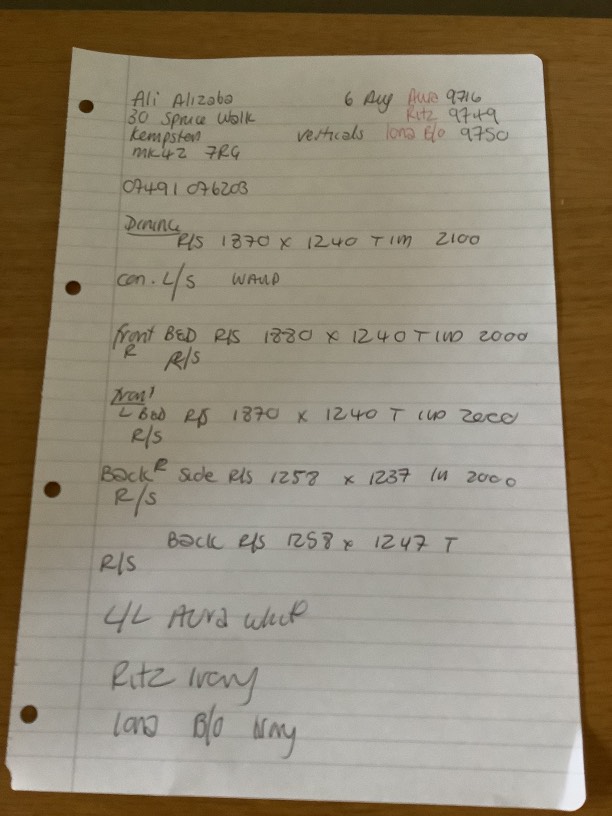 Ali Alizaba 6 Aug Aura 9716
30 Spruce Walk Ritz 9749
Kempston verticals Iona B/o 9750
MK42 7RG
07491 076203
Dining
R/S 1870 x 1240 T 2100
con. L/S
front BED R/S 1880 x 1240 T 2000
R R/S
front
L BED R/S 1870 x 1240 T 2000
R/S
Back R side R/S 1258 x 1237 2000
R/S
Back R/S 1258 x 1247 T
R/S
L/L Aura
Ritz Ivory
Iona B/o Ivory